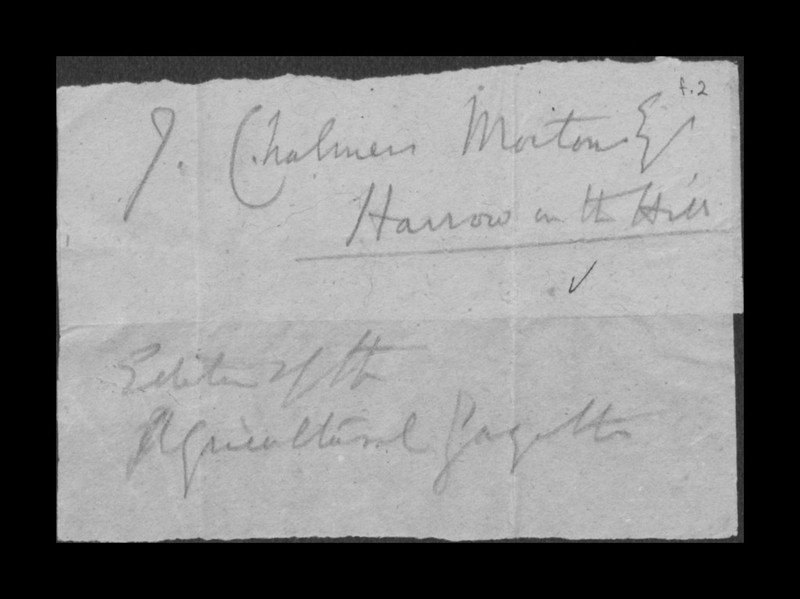 f.2
J. Chalmers Morton Esq
Harrow on the Hill
✓
Editor of the
Agricultural Gazette